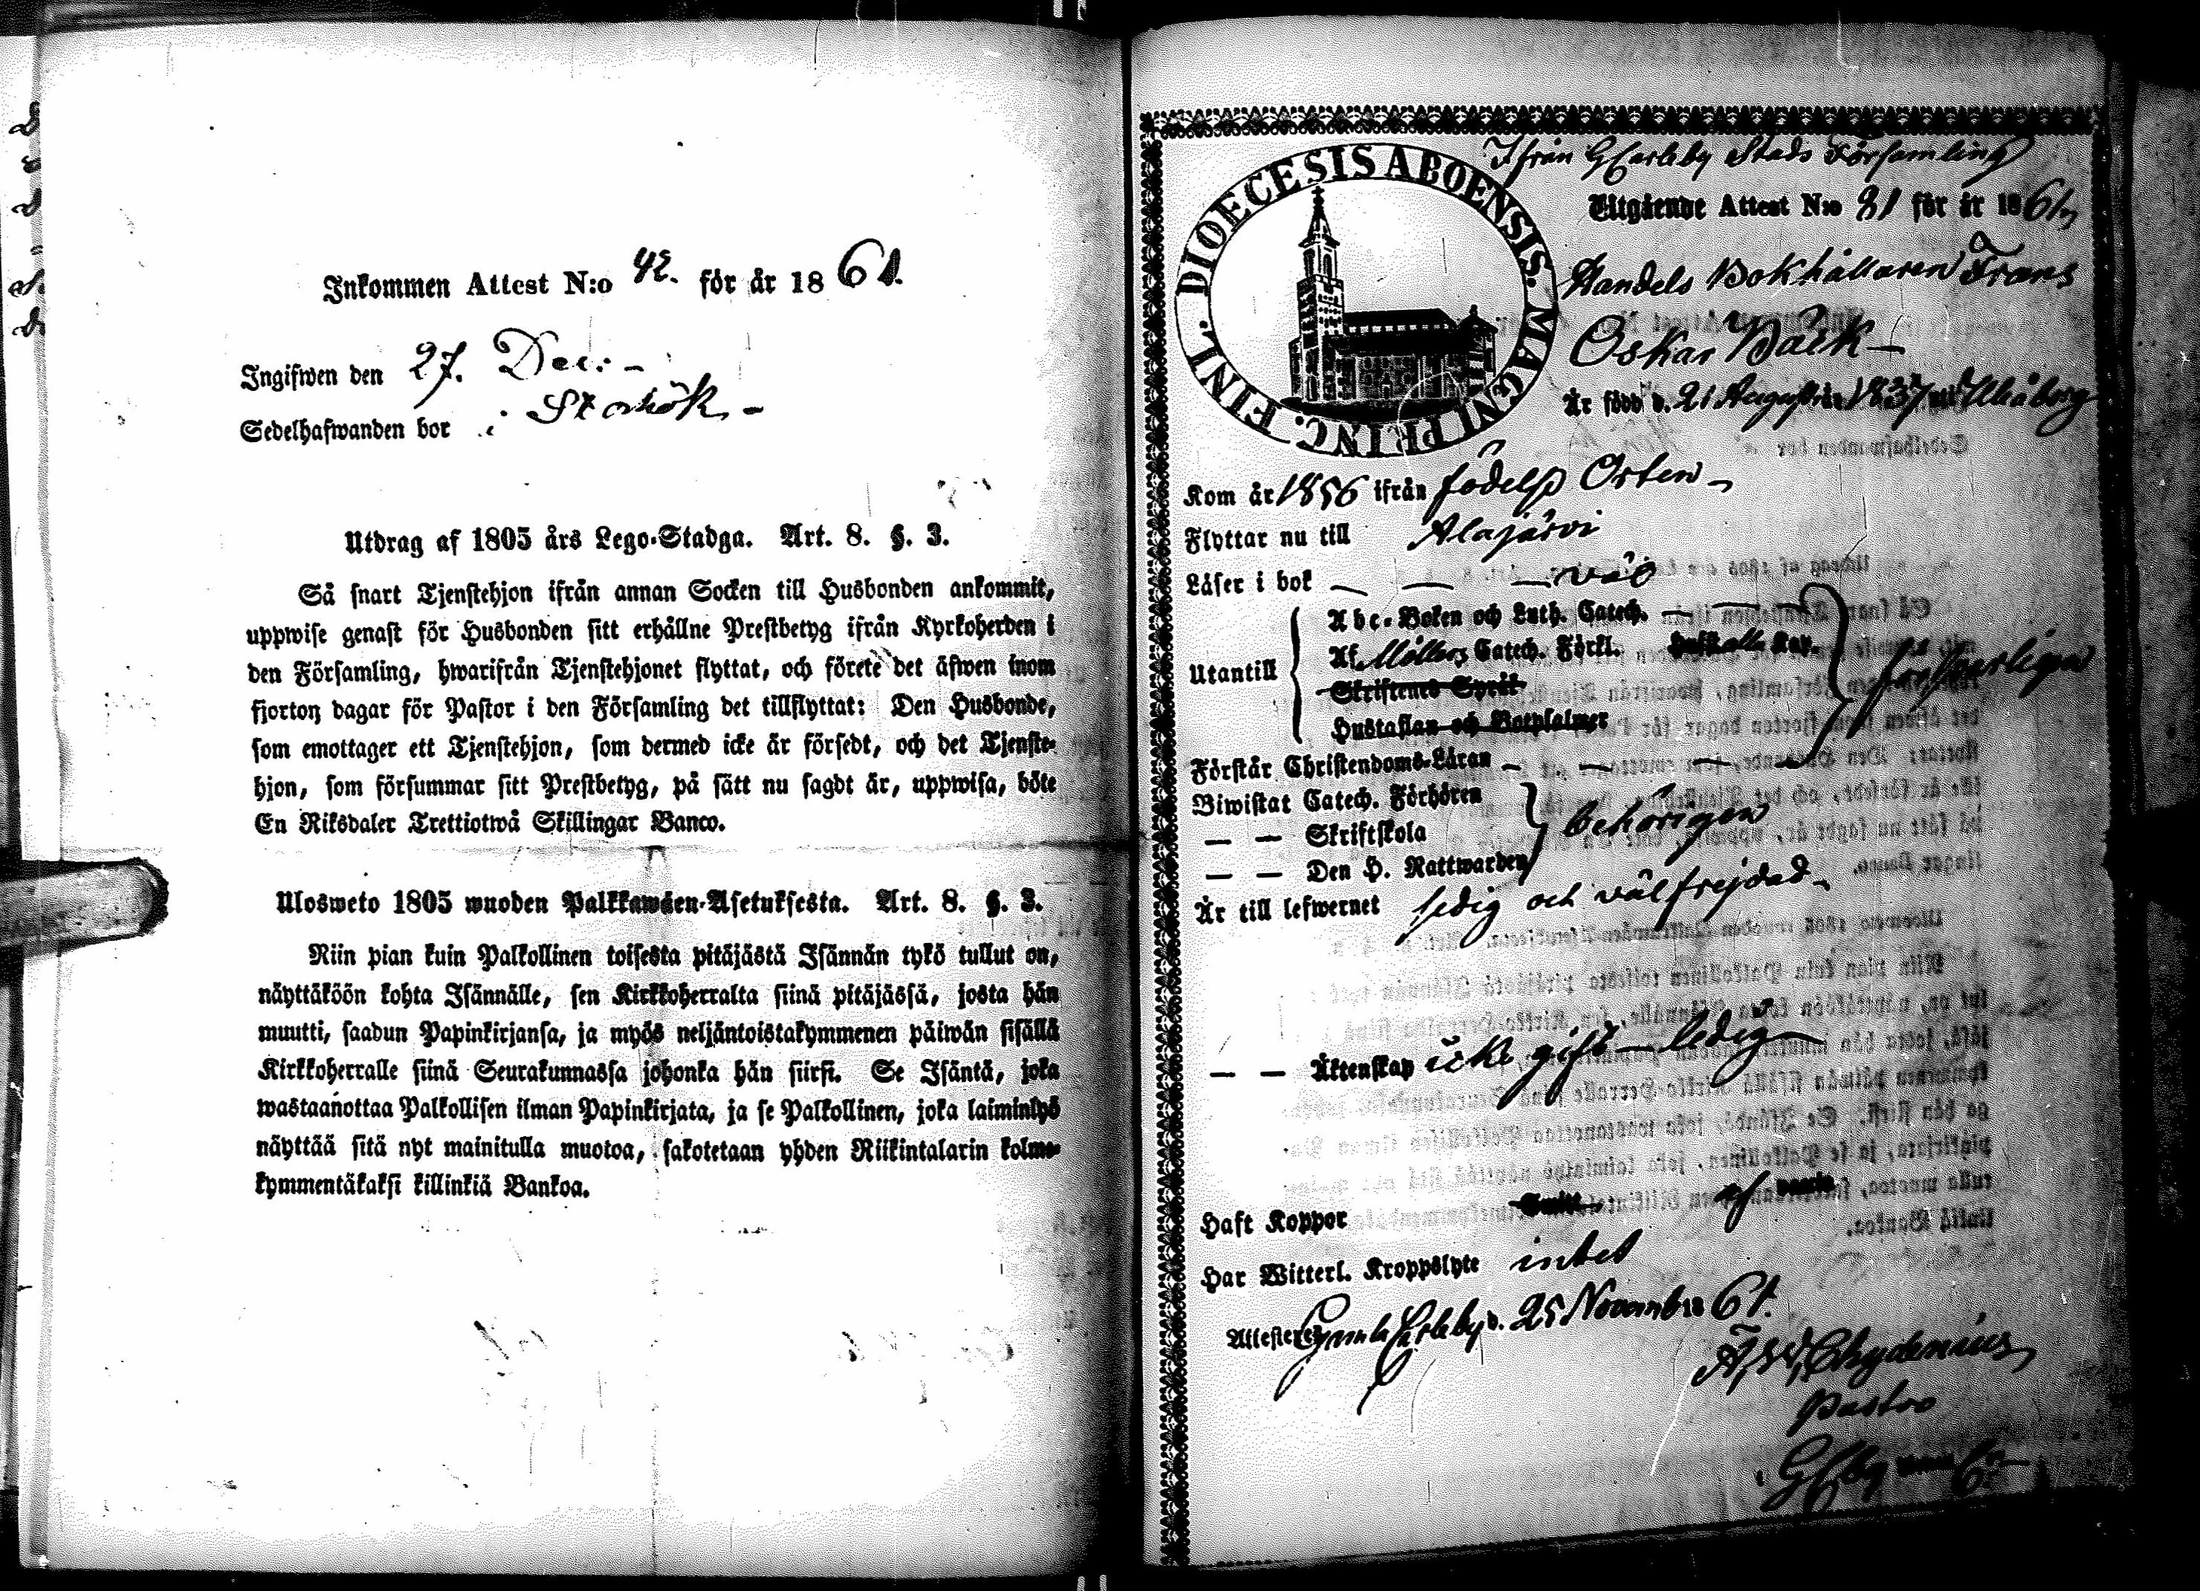 Inkommen Attest N:o 42. för år 1861.
Ingifwen den 27. Dec:
Sedelhafwanden bor i
Utdrag af 1805 års Lego-Stadga. Art. 8. §. 3.
Så snart Tjenstehjon ifrån annan Socken till Husbonden ankommit,
uppwise genast för Husbonden sitt erhållne Prestbetyg ifrån Kyrkoherden i
den Församling, hwarifrån Tjenstehjonet flyttat, och förete det äfwen inom
fjorton dagar för Pastor i den Församling det tillflyttat: Den Husbonde,
som emottager ett Tjenstehjon, som dermed icke är försedt, och det Tjenste-
hjon, som försummar sitt Prestbetyg, på sätt nu sagdt är, uppwisa, böte
En Riksdaler Trettiotwå Skillingar Banco.
Ulosweto 1805 wuoden Palkkawäen-Asetuksesta. Art. 8. §. 3.
Niin pian kuin Palkollinen toisesta pitäjästä Isännän tykö tullut on,
näyttäköön kohta Isännälle, sen Kirkkoherralta siinä pitäjässä, josta hän
muutti, saadun Papinkirjansa, ja myös neljäntoistakymmenen päiwän sisällä
Kirkkoherralle siinä Seurakunnassa johonka hän siirsi. Se Isäntä, joka
wastaanottaa Palkollisen ilman Papinkirjata, ja se Palkollinen, joka laiminlyö
näyttää sitä nyt mainitulla muotoa, sakotetaan yhden Riikintalarin kolme-
kymmentäkaksi killinkiä Bankoa.
DIOECESIS ABOENSIS. MAGNI PRINC. FINL.
Ifrån GCarleby Stads Församling
Utgående Attest N:o 81 för år 1861
Handels Bokhållaren Frans
Oskar Bäck
Är född d. 21 August 1837 Uleåborg
Kom år 1856 ifrån födelse Orten
Flyttar nu till Alajärvi
Läser i bok väl
Utantill
Abc-Boken och Luth. Catech.
Af Möllers Catech. Förkl. alla Kap.
Skriftenes Språk
Hustaflan och Botpsalmer
försvarligen
Förstår Christendoms-Läran
Biwistat Catech. Förhören
— — Skriftskola
— — Den H. Nattwarden
behörigen
Är till lefwernet ledig och välfrejdad
— — Äktenskap icke gift — ledig
Haft Koppor
Har Witterl. Kroppslyte intet
Attesterar Gamla Carleby d. 25 Novemb 1861.
Chydenius
Pastor